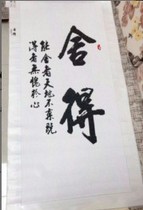 舍得
能舍者天地不棄既
得者無愧於心